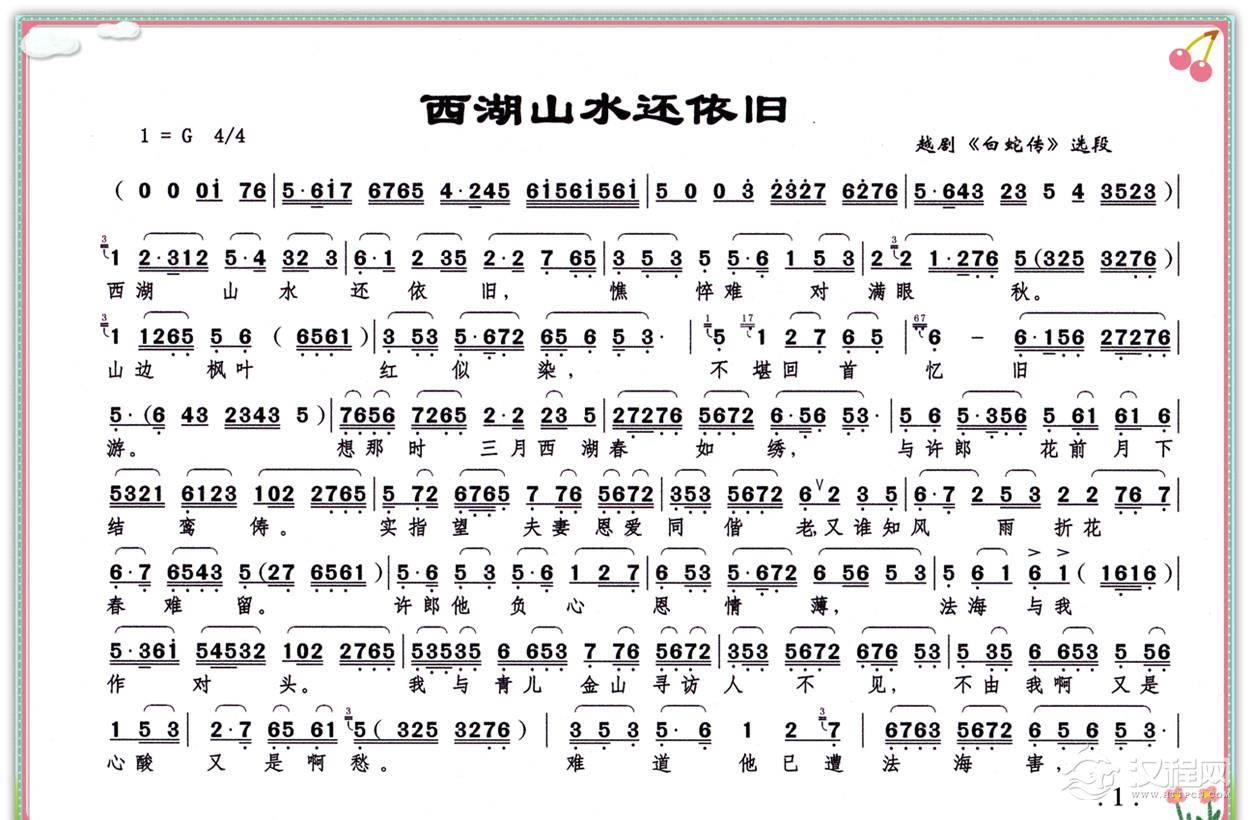 西湖山水还依旧
1 = G 4/4
越剧《白蛇传》选段
( 0 0 0i 76 | 5·6i7 6765 4·245 6i56i56i | 5 0 0 3 2327 6276 | 5·643 23 5 4 3523 ) |
3 1 2·312 5·4 32 3 | 6·1 2 35 2·2 7 65 | 3 5 3 5 5·6 1 53 | 2 3 2 1·276 5 (325 3276 ) |
西湖 山 水 还 依 旧, 憔 悴难 对 满眼 秋。
3 1 1265 5 6 ( 6561 ) | 3 53 5·672 65 6 5 3· | 1 5 17 1 2 7 6 5 | 67 6 - 6·156 27276 |
山边 枫叶 红 似 染, 不 堪回 首 忆 旧
5· (6 43 2343 5 ) | 7656 7265 2·2 23 5 | 27276 5672 6·56 53· | 5 6 5·356 5 61 61 6 |
游。 想那 时 三月西 湖春 如 绣, 与许郎 花前 月下
5321 6123 102 2765 | 5 72 6765 7 76 5672 | 353 5672 6 ∨ 2 3 5 | 6·7 2 53 2 2 76 7 |
结 鸾 俦。 实指望 夫妻恩爱同 偕 老,又谁知风 雨 折花
6·7 6543 5 (27 6561 ) | 5·6 5 3 5·6 1 2 7 | 6 53 5·672 6 56 5 3 | 5 6 1 6 1 ( 1616 ) |
春难 留。 许郎他 负心 恩 情 薄, 法海 与我
5·36i 54532 102 2765 | 53535 6 653 7 76 5672 | 353 5672 676 53 | 5 35 6 653 5 56 |
作 对 头。 我 与 青儿 金山 寻访 人 不 见, 不由我啊 又是
1 5 3 2·7 65 61 3 5 ( 325 3276 ) | 3 5 3 5· 6 1 2 3 7 | 6763 5672 6 5 6 5 3· |
心酸 又 是啊愁。 难 道 他已遭 法 海 害,
汉程网
WWW.HTTPCN.COM
· 1 ·